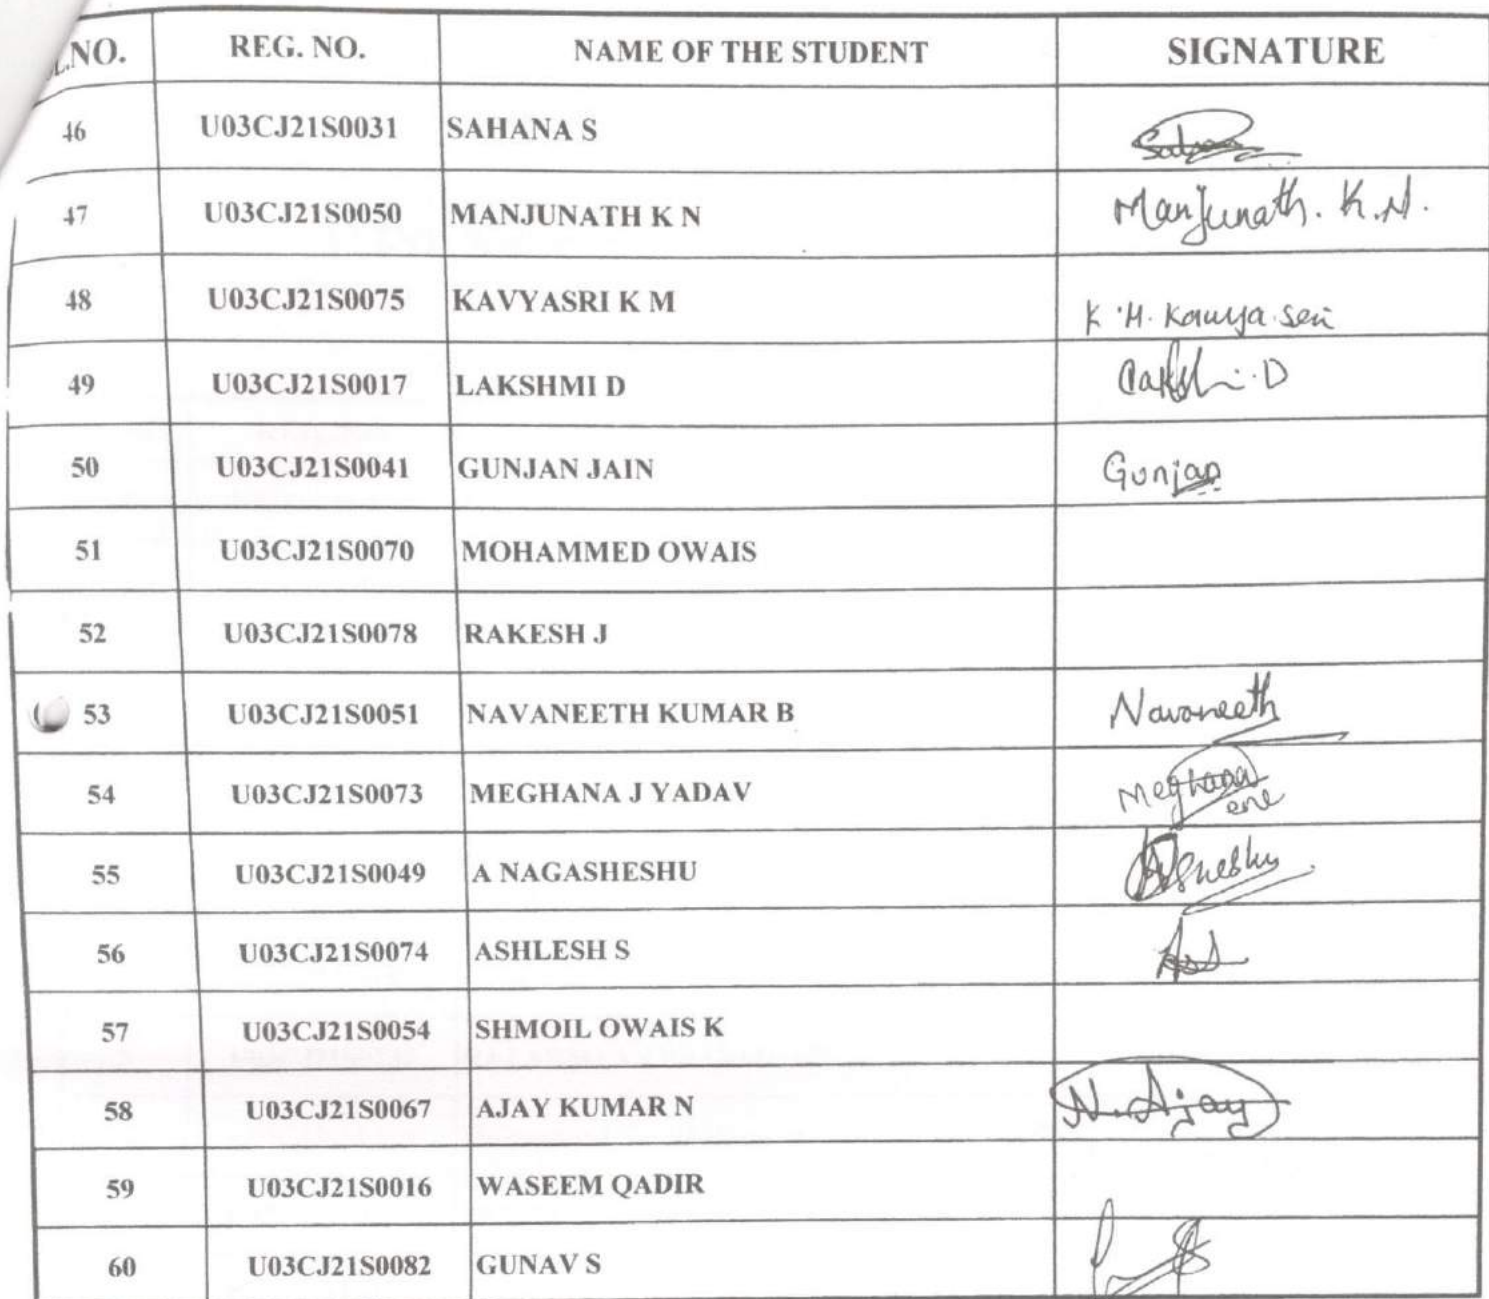 L.NO. REG. NO. NAME OF THE STUDENT SIGNATURE
46 U03CJ21S0031 SAHANA S
47 U03CJ21S0050 MANJUNATH K N Manjunath. K.N.
48 U03CJ21S0075 KAVYASRI K M K.M. Kavya sri
49 U03CJ21S0017 LAKSHMI D
50 U03CJ21S0041 GUNJAN JAIN Gunjan
51 U03CJ21S0070 MOHAMMED OWAIS
52 U03CJ21S0078 RAKESH J
53 U03CJ21S0051 NAVANEETH KUMAR B Navaneeth
54 U03CJ21S0073 MEGHANA J YADAV Meghana
55 U03CJ21S0049 A NAGASHESHU
56 U03CJ21S0074 ASHLESH S
57 U03CJ21S0054 SHMOIL OWAIS K
58 U03CJ21S0067 AJAY KUMAR N N. Ajay
59 U03CJ21S0016 WASEEM QADIR
60 U03CJ21S0082 GUNAV S